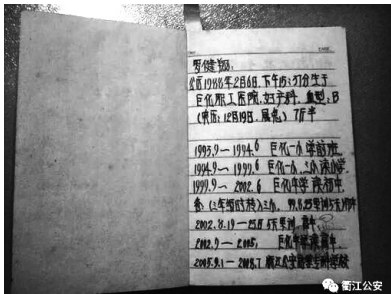 罗健翔:
公历1988年2月6日.下午15:57分生于
巨化职工医院.妇产科.血型:B
(农历:12月19日.属兔) 7斤半
1993.9~1994.6 巨化一小学前班
1994.9~1999.6 巨化一小.三小读小学
1999.9~2002.6 巨化中学 读初中
2002.8.19~25日
2002.9~2005. 巨化中学读高中.
2005.9.1~2008.7 浙江公安高等专科学校
衢江公安